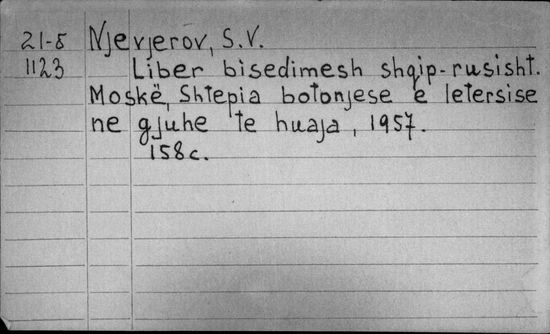 21-5 Njevjerov, S.V.
1123 Liber bisedimesh shqip-rusisht.
Moskë, Shtepia botonjese e letersise
ne gjuhe te huaja, 1957.
158c.